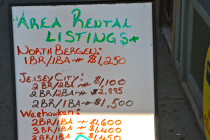 AREA RENTAL
LISTINGS
NORTH BERGEN:
1BR/1BA → $1,250
JERSEY CITY:
2BR/1BA → $1,100
2BR/2BA → $2,895
2BR/1BA → $1,500
WEEHAWKEN:
2BR/1BA → $1,600
$1,400